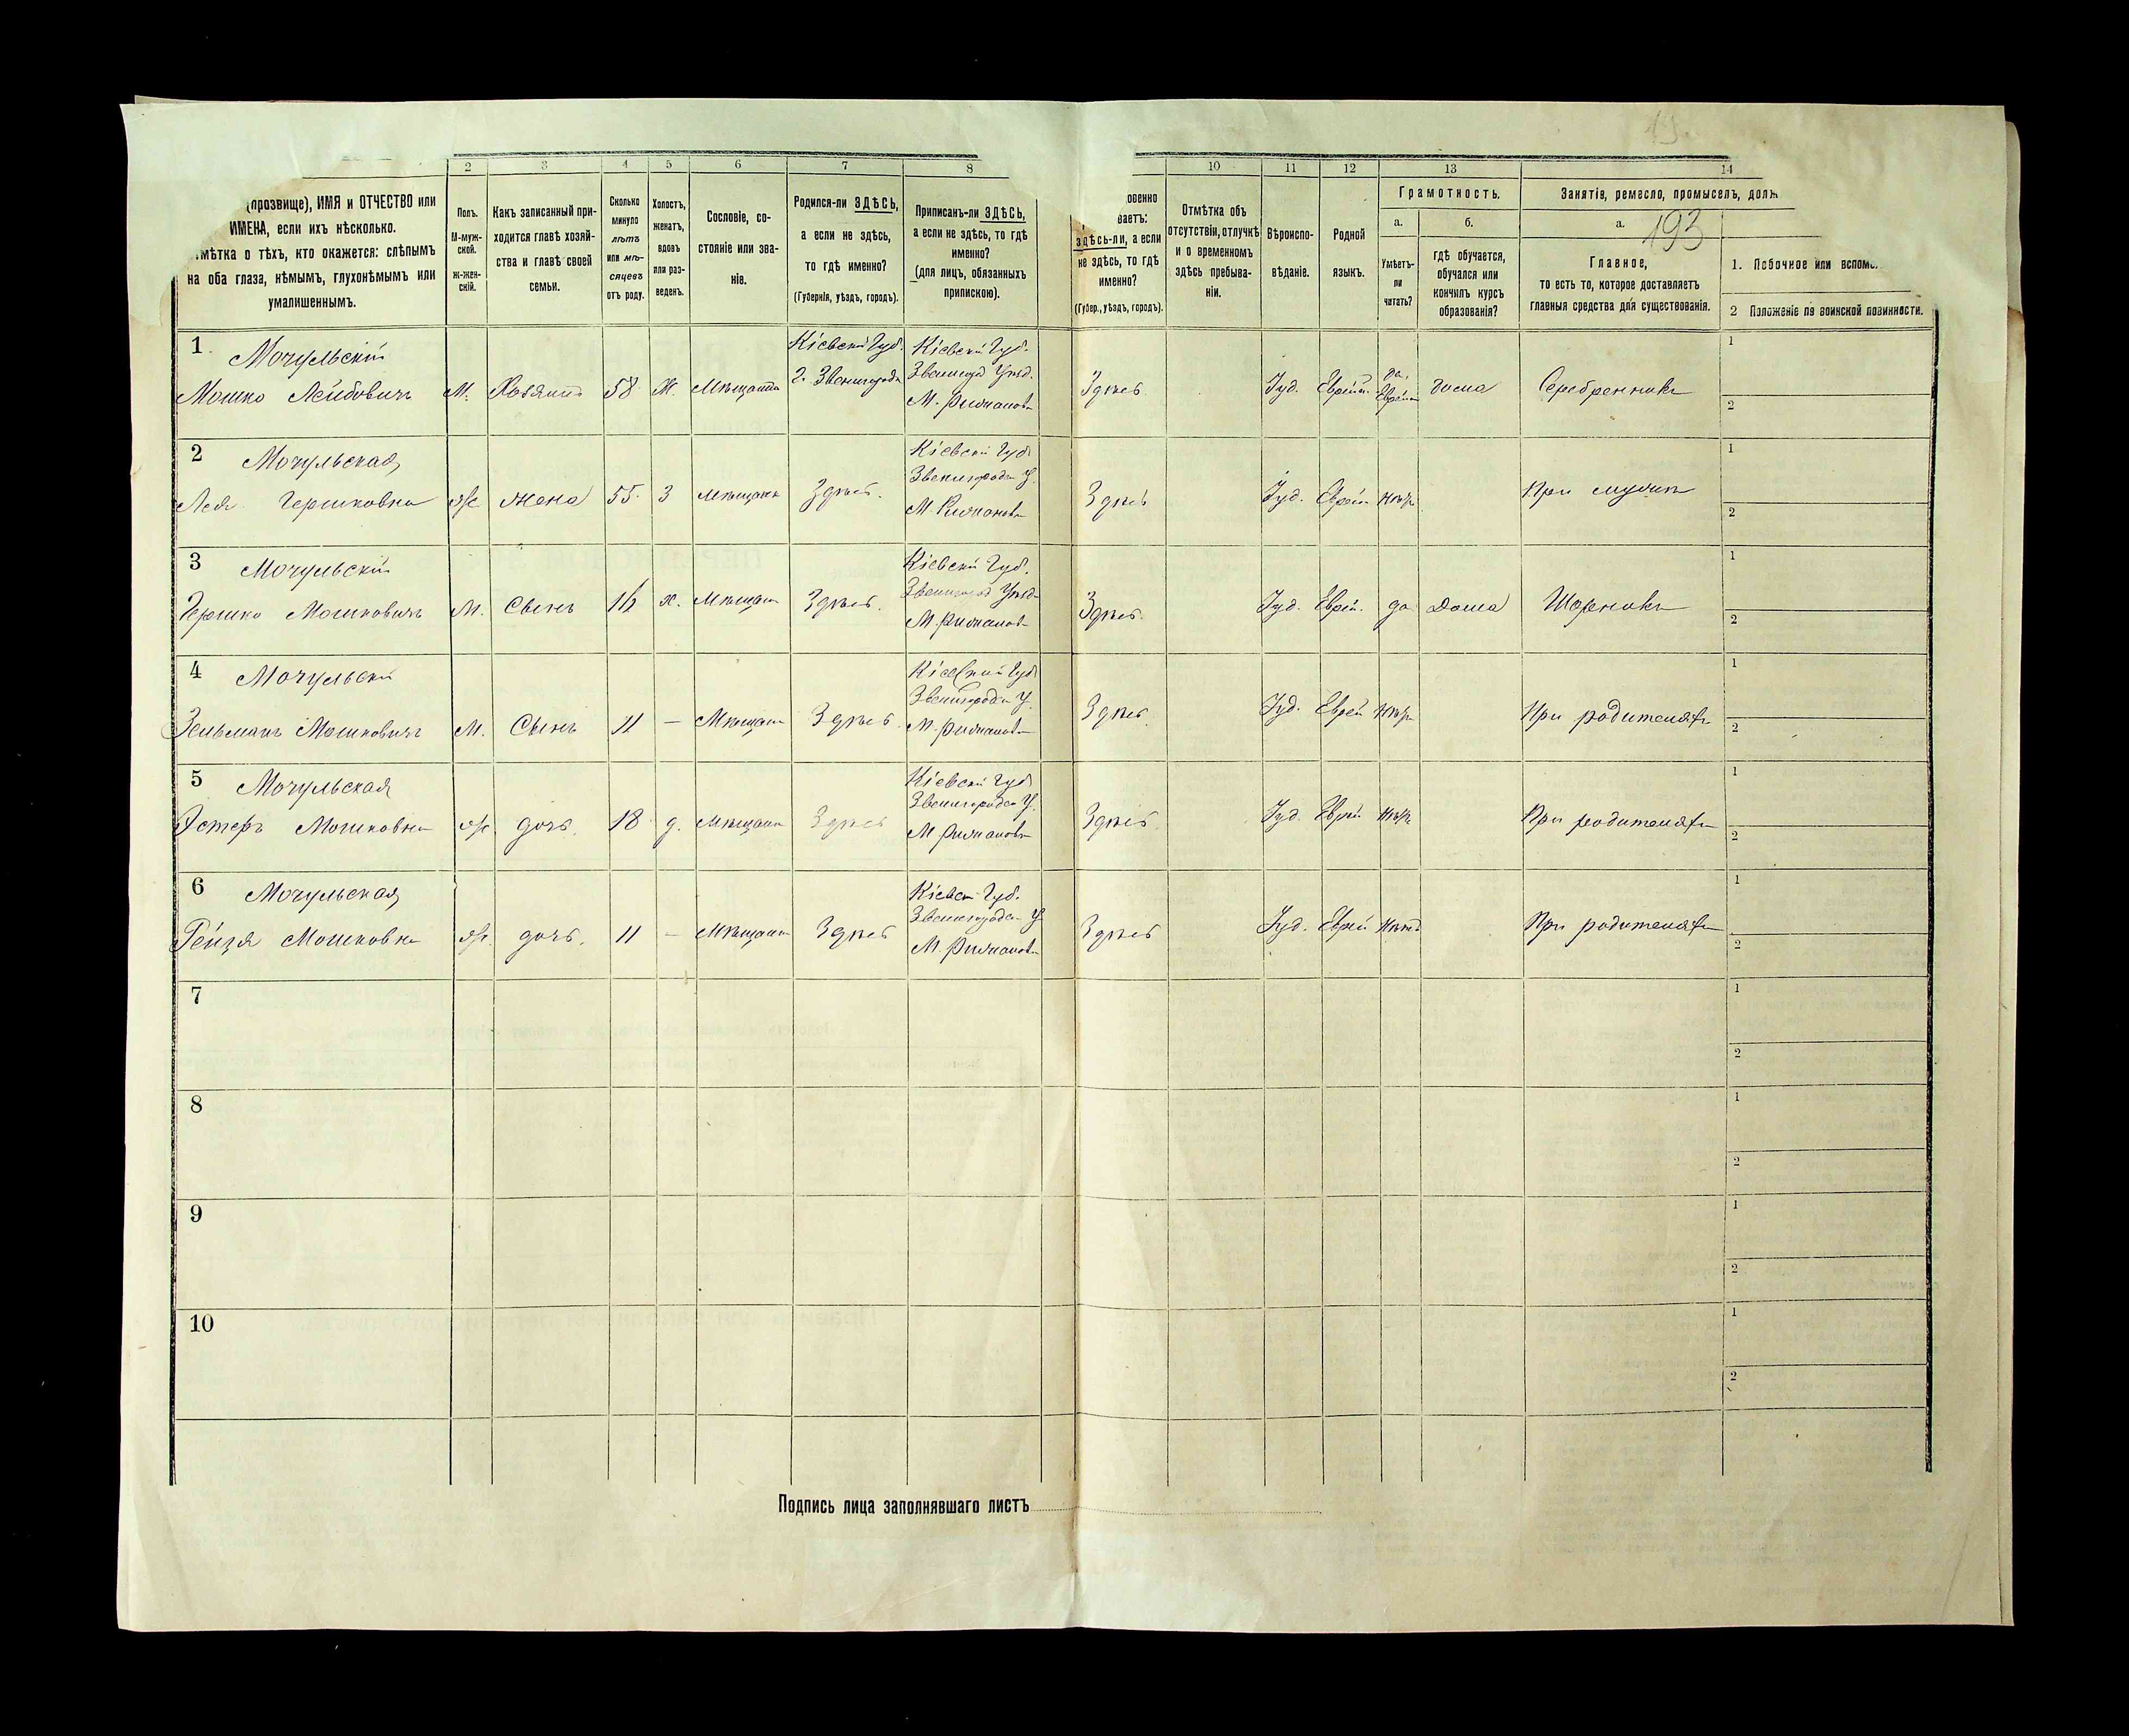 19.
2
3
4
5
6
7
8
10
11
12
13
14
(прозвище), ИМЯ и ОТЧЕСТВО или
ИМЕНА, если ихъ нѣсколько.
мѣтка о тѣхъ, кто окажется: слѣпымъ
на оба глаза, нѣмымъ, глухонѣмымъ или
умалишеннымъ.
Полъ.
М-муж-
ской.
ж-жен-
скій.
Какъ записанный при-
ходится главѣ хозяй-
ства и главѣ своей
семьи.
Сколько
минуло
лѣтъ
или мѣ-
сяцевъ
отъ роду.
Холостъ,
женатъ,
вдовъ
или раз-
веденъ.
Сословіе, со-
стояніе или зва-
ніе.
Родился-ли ЗДѢСЬ,
а если не здѣсь,
то гдѣ именно?
(Губернія, уѣздъ, городъ).
Приписанъ-ли ЗДѢСЬ,
а если не здѣсь, то гдѣ
именно?
(для лицъ, обязанныхъ
припискою).
овенно
ваетъ:
здѣсь-ли, а если
не здѣсь, то гдѣ
именно?
(Губер., уѣздъ, городъ).
Отмѣтка объ
отсутствіи, отлучкѣ
и о временномъ
здѣсь пребыва-
ніи.
Вѣроиспо-
вѣданіе.
Родной
языкъ.
Грамотность.
а.
Умѣетъ-
ли
читать?
б.
гдѣ обучается,
обучался или
кончилъ курсъ
образованія?
Занятія, ремесло, промыселъ, долж
а.
193
Главное,
то есть то, которое доставляетъ
главныя средства для существованія.
1. Побочное или вспом
2 Положеніе по воинской повинности.
1
Мочульскій
Мошко Лейбовичъ
М.
Хозяинъ
58
Ж.
Мѣщанин
Кіевской Губ.
г. Звенигородк
Кіевской Губ.
Звенигород Уѣзд.
М. Рижановк
Здѣсь
Іуд.
Еврейск
да.
Еврейск
дома
Серебренникъ
1
2
2
Мочульская
Лея Гершковна
ж
жена
55
З
Мѣщанк
Здѣсь.
Кіевской Губ
Звенигородск У.
М Рижановк
Здѣсь
Іуд.
Еврей
Нѣтъ
При мужѣ
1
2
3
Мочульскій
Гершко Мошковичъ
М.
Сынъ
16
х.
Мѣщан
Здѣсь.
Кіевской Губ.
Звенигород Уѣзд
М. Рижановк
Здѣсь.
Іуд.
Еврей.
да
Дома
Шорникъ
1
2
4
Мочульскій
Зельманъ Мошковичъ
М.
Сынъ
11
—
Мѣщан
Здѣсь.
Кіевской Губ
Звенигородск У.
М. Рижановк
Здѣсь.
Іуд.
Еврей
Нѣтъ
При родителях
1
2
5
Мочульская
Эстеръ Мошковна
ж.
дочь.
18
д.
Мѣщанк
Здѣсь
Кіевской Губ
Звенигородск У.
М Рижановк
Здѣсь.
Іуд.
Еврей
Нѣтъ
При родителях
1
2
6
Мочульская
Рейзя Мошковна
ж.
дочь.
11
—
Мѣщанк
Здѣсь
Кіевск Губ.
Звенигородск У
М. Рижановк
Здѣсь
Іуд.
Еврей
Нѣтъ
При родителях
1
2
7
1
2
8
1
2
9
1
2
10
1
2
Подпись лица заполнявшаго листъ